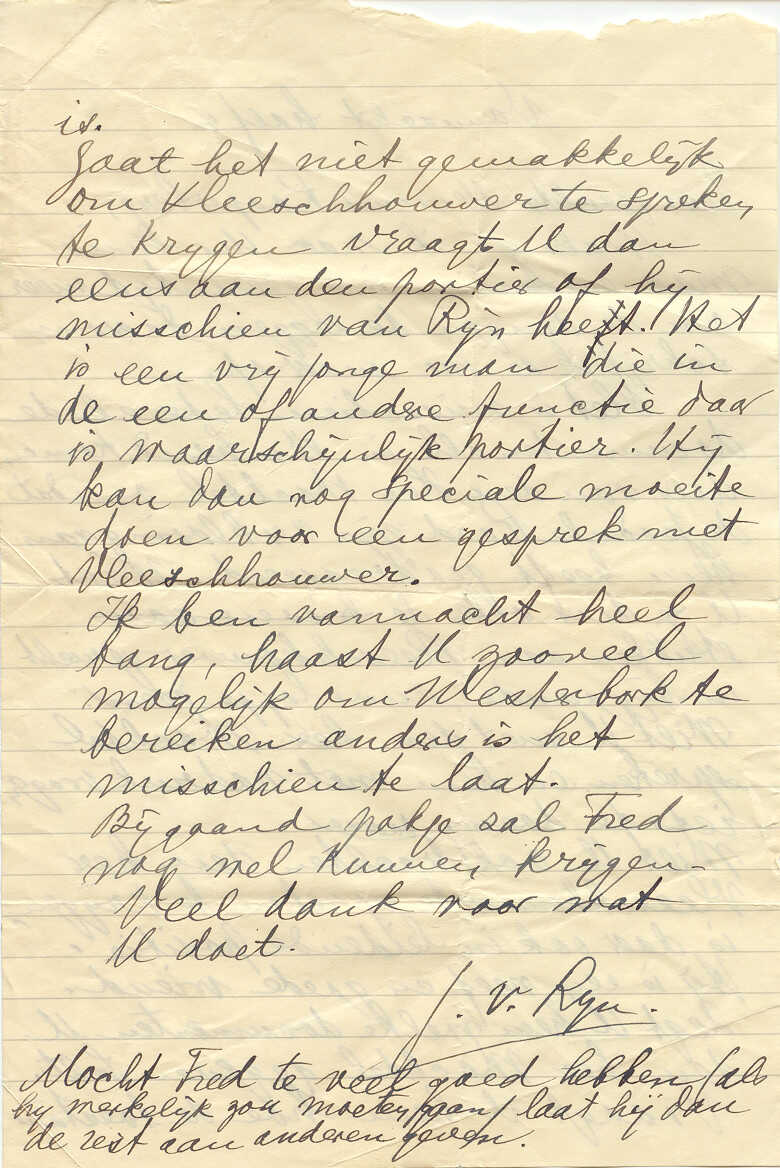 is.
Gaat het niet gemakkelijk
om Vleeschhouwer te spreken
te krygen vraagt U dan
eens aan den portier of hij
misschien van Rijn heet. Het
is een vrij jonge man die in
de een of andere functie daar
is waarschijnlijk portier. Hij
kan dan nog speciale moeite
doen voor een gesprek met
Vleeschhouwer.
Ik ben vannacht heel
bang, haast U zooveel
mogelijk om Westerbork te
bereiken anders is het
misschien te laat.
Bijgaand pakje zal Fred
nog wel kunnen krijgen.
Veel dank voor wat
U doet.
J. v. Ryn.
Mocht Fred te veel goed hebben (als
hij werkelijk zou moeten gaan) laat hij dan
de rest aan anderen geven.